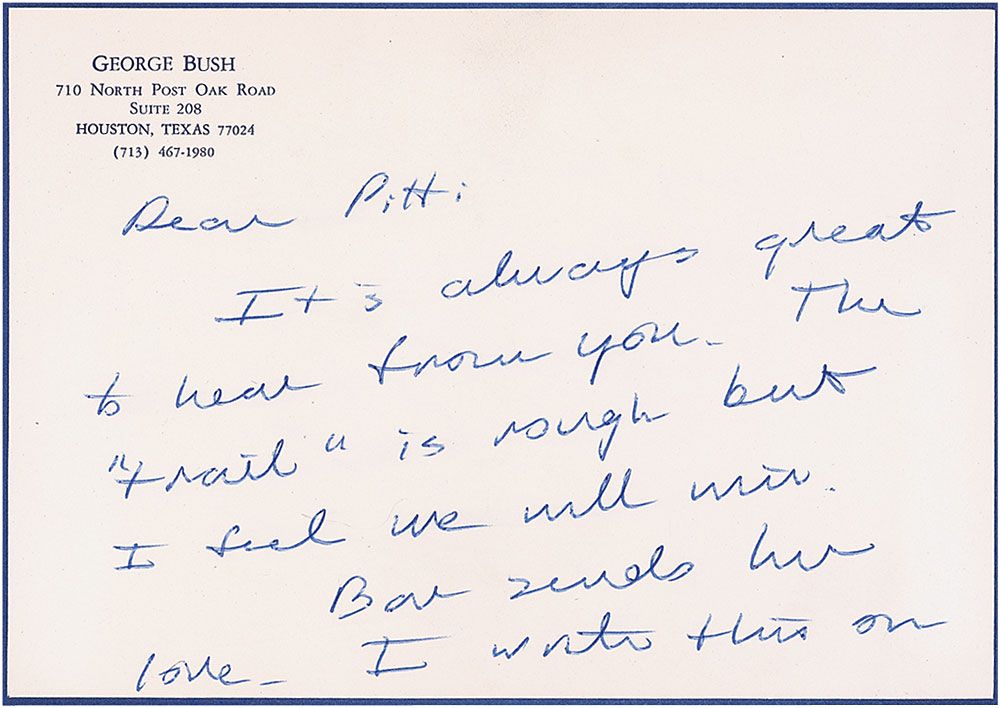 GEORGE BUSH
710 NORTH POST OAK ROAD
SUITE 208
HOUSTON, TEXAS 77024
(713) 467-1980
Dear Pitti
It's always great
to hear from you. The
"trail" is rough but
I feel we will win.
Bar sends her
love. I write this on